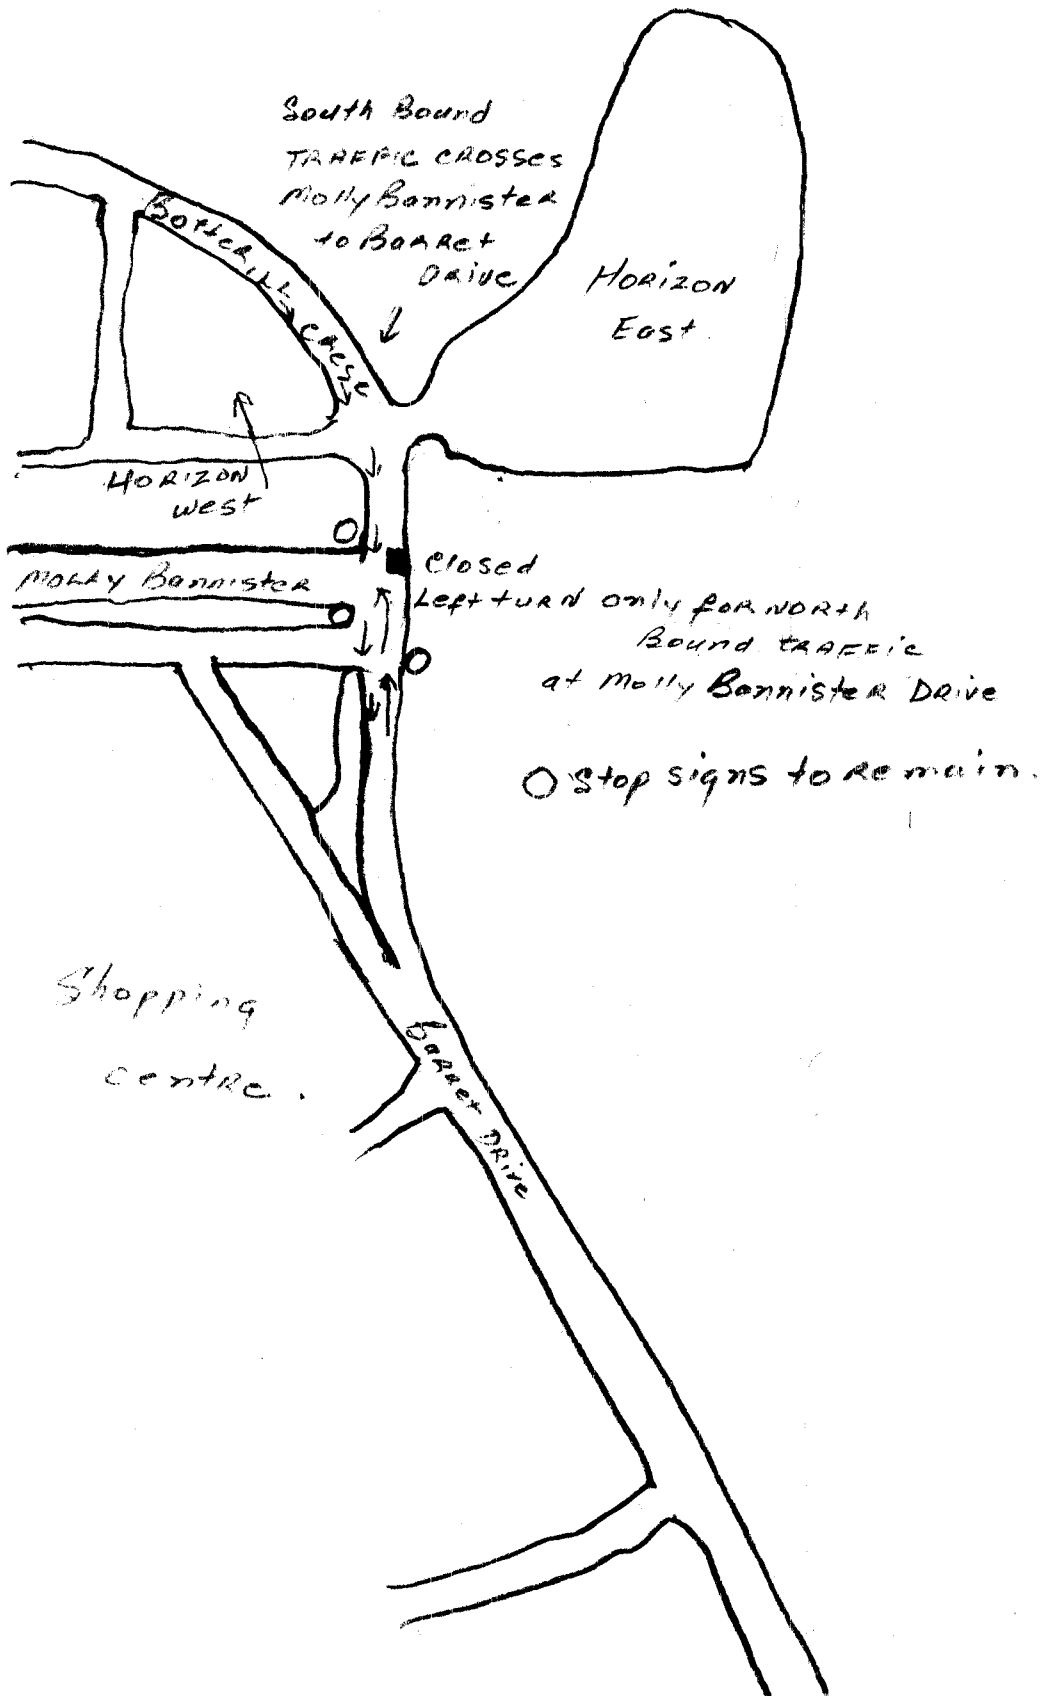 South Bound
TRAFFIC CROSSES
Molly Bannister
to BARRet
DRive
HORIZON
East.
Botterill Cresc
HORIZON
west
MOLLY Bannister
Closed
Left tuRN only foR NORth
Bound tRAFFic
at Molly Bannister DRive
Stop signs to Remain.
Shopping
centre.
BARRet DRive